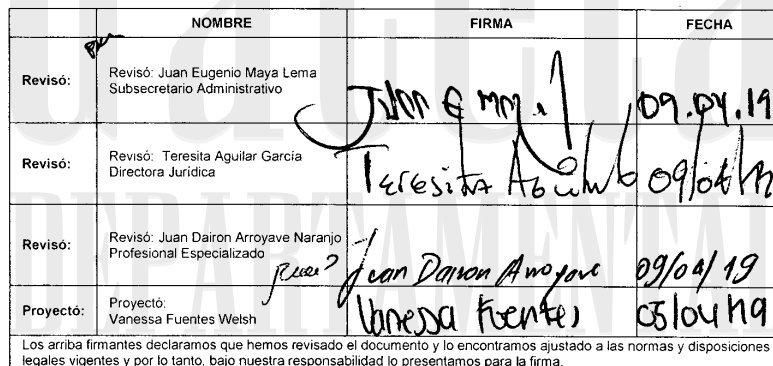 NOMBRE FIRMA FECHA
Revisó: Revisó: Juan Eugenio Maya Lema
Subsecretario Administrativo
Juan E M 09.04.19
Revisó: Revisó: Teresita Aguilar García
Directora Jurídica
Teresita Aguilar 09/04/19
Revisó: Revisó: Juan Dairon Arroyave Naranjo
Profesional Especializado
Juan Dairon Arroyave 09/04/19
Proyectó: Proyectó:
Vanessa Fuentes Welsh
Vanessa Fuentes 05/04/19
Los arriba firmantes declaramos que hemos revisado el documento y lo encontramos ajustado a las normas y disposiciones
legales vigentes y por lo tanto, bajo nuestra responsabilidad lo presentamos para la firma.
DEPARTAMENTAL